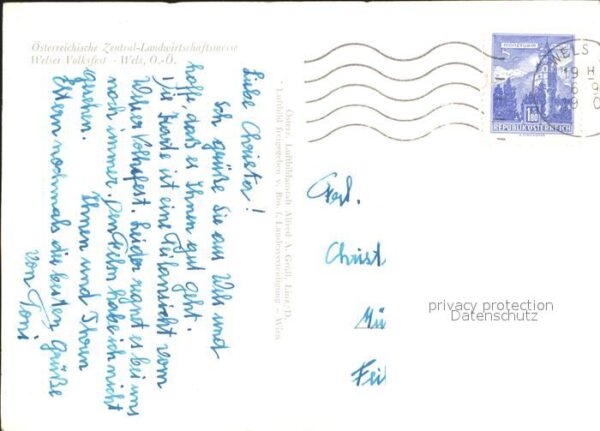 Österreichische Zentral-Landwirtschaftsmesse
Welser Volksfest - Wels, O.-Ö.
Liebe Christa!
Ich grüße Sie aus Wels und
hoffe, daß es Ihnen gut geht.
Die Karte ist eine Teilansicht vom
Welser Volksfest. Leider regnet es bei uns
noch immer. Den habe ich nicht
gesehen.
Ihnen und Ihren
Eltern nochmals die besten Grüße
von Toni
Österr. Luftbildanstalt Alfred A. Groß, Linz/D.
Luftbild freigegeben v. Bm. f. Landesverteidigung - Wien
WELS
19 H
6 9
1.80
REPUBLIK ÖSTERREICH
Frl.
Christ
Mü
Feil
privacy protection
Datenschutz